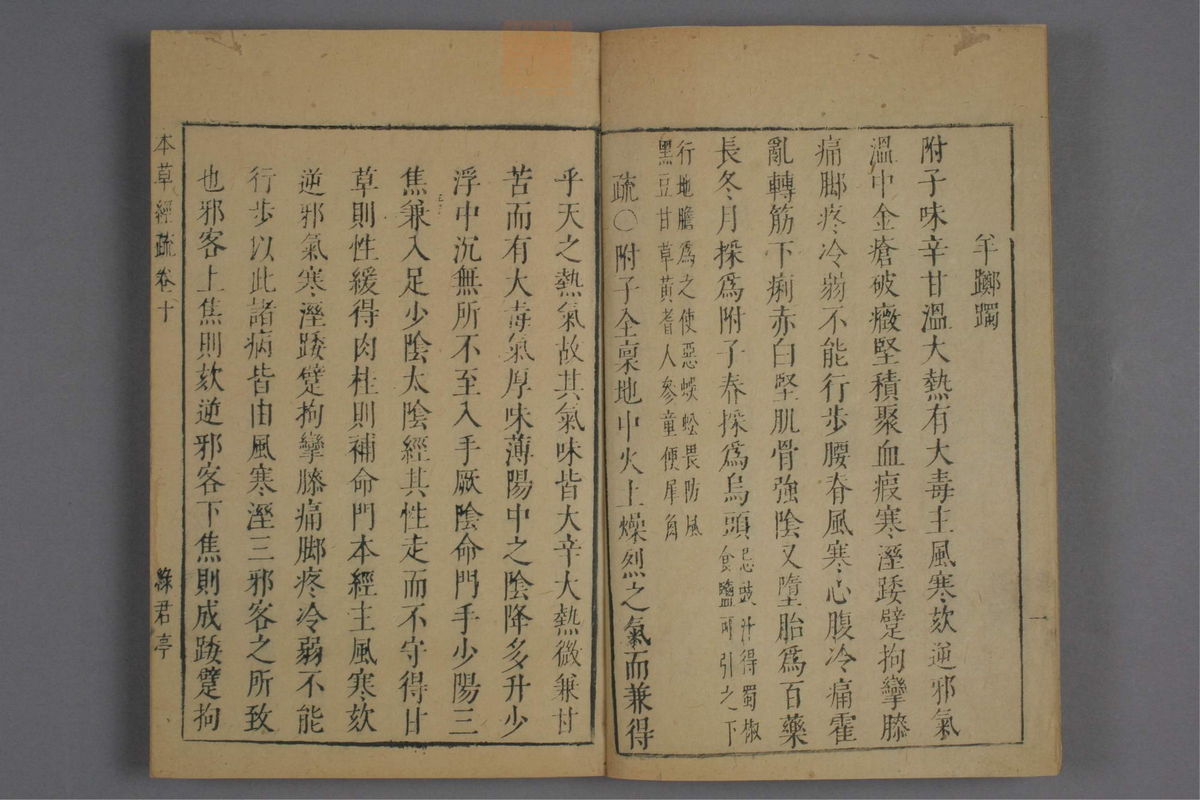 羊躑躅
附子味辛甘溫大熱有大毒主風寒欬逆邪氣
溫中金瘡破癥堅積聚血瘕寒溼踒躄拘攣膝
痛脚疼冷弱不能行步腰脊風寒心腹冷痛霍
亂轉筋下痢赤白堅肌骨強陰又墮胎爲百藥
長冬月採爲附子春採爲烏頭忌豉汁得蜀椒
食鹽可引之下
行地膽爲之使惡蜈蚣畏防風
黑豆甘草黃耆人參童便犀角
疏〇附子全稟地中火土燥烈之氣而兼得
乎天之熱氣故其氣味皆大辛大熱微兼甘
苦而有大毒氣厚味薄陽中之陰降多升少
浮中沉無所不至入手厥陰命門手少陽三
焦兼入足少陰太陰經其性走而不守得甘
草則性緩得肉桂則補命門本經主風寒欬
逆邪氣寒溼踒躄拘攣膝痛脚疼冷弱不能
行步以此諸病皆由風寒溼三邪客之所致
也邪客上焦則欬逆邪客下焦則成踒躄拘
本草經疏 卷十
綠君亭
一